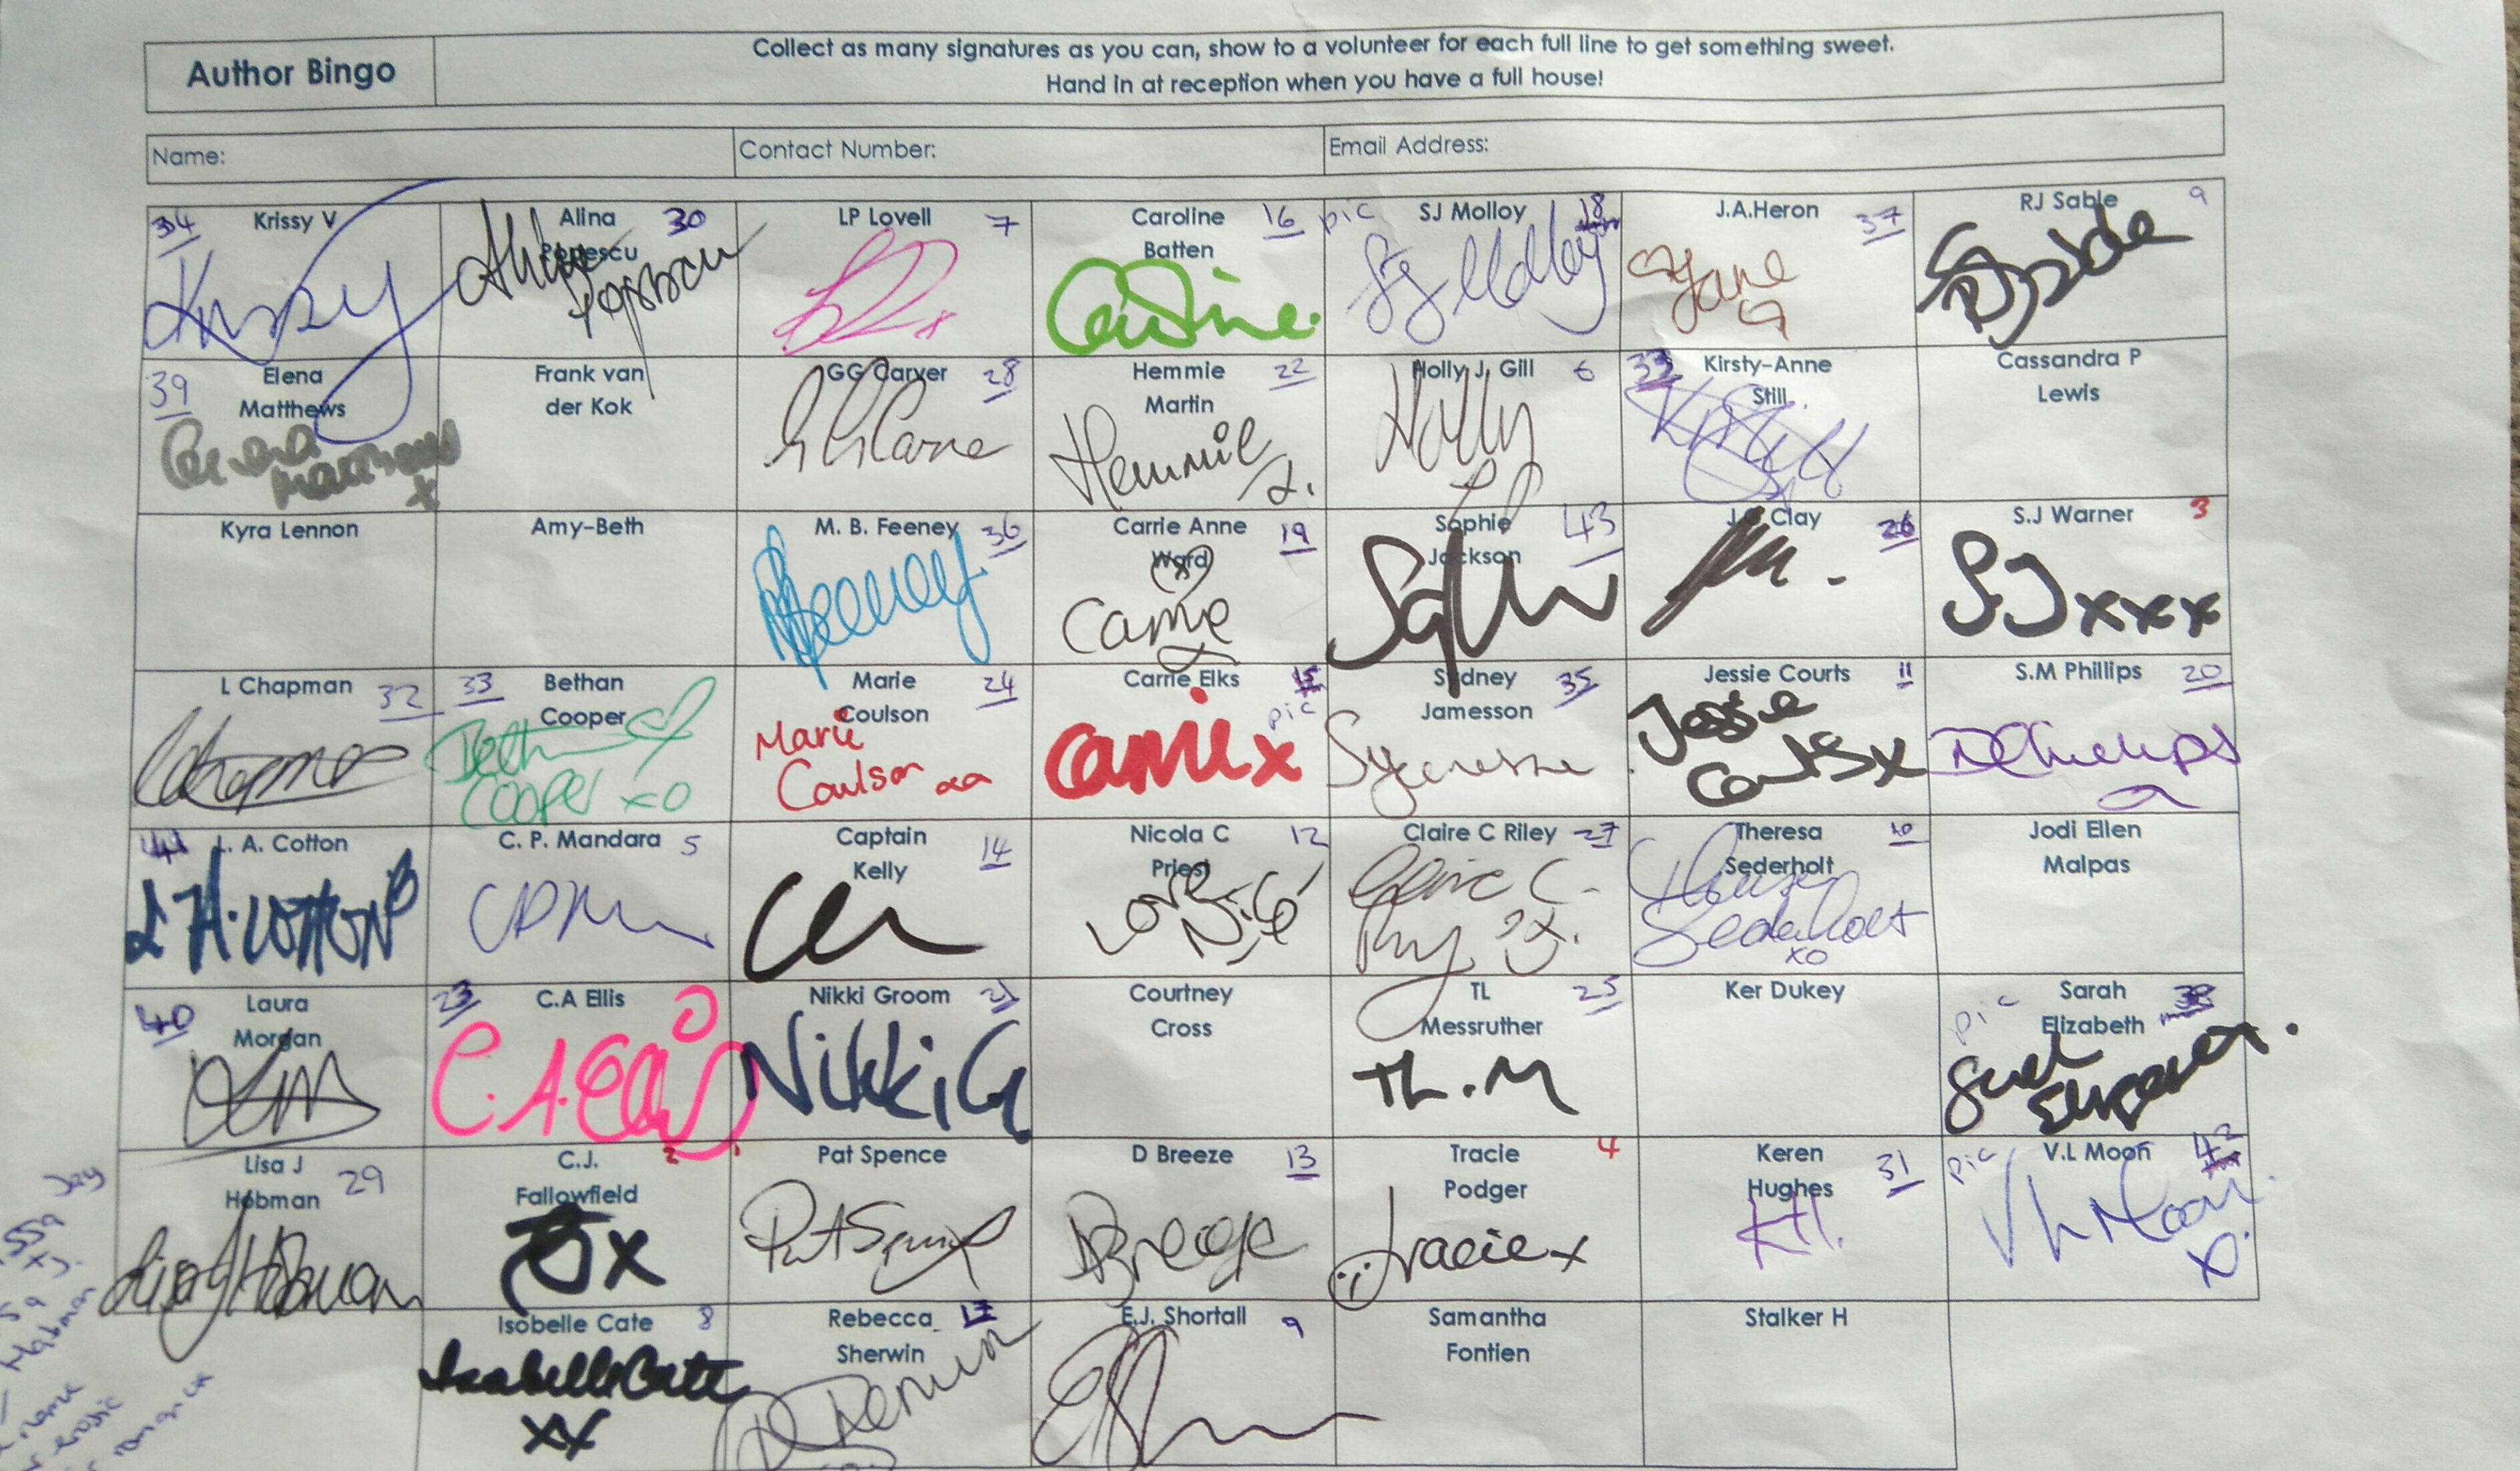 Author Bingo
Collect as many signatures as you can, show to a volunteer for each full line to get something sweet.
Hand in at reception when you have a full house!
Name:
Contact Number:
Email Address:
34 Krissy V
Krissy
Alina 30
Popescu
Alina
Popescu
LP Lovell 7
Caroline 16
Batten
Caroline
pic SJ Molloy 18
SJ Molloy
J.A.Heron 37
Jane
RJ Sable 9
RJ Sable
39 Elena
Matthews
Elena
Matthews
x
Frank van
der Kok
GG Carver 28
Hemmie 22
Martin
Hemmie
Holly J. Gill 6
Holly
33 Kirsty-Anne
Still
Cassandra P
Lewis
Kyra Lennon
Amy-Beth
M. B. Feeney 36
MBFeeney
Carrie Anne 19
Ward
Carrie
Sophie 43
Jackson
Clay 26
S.J Warner 3
SJ xxx
L Chapman 32
LChapman
33 Bethan
Cooper
Bethan
Cooper xo
Marie 24
Coulson
Marie
Coulson
Carrie Elks 15
pic
Carrie x
Sydney 35
Jamesson
Jessie Courts 11
Jessie
Courts x
S.M Phillips 20
L. A. Cotton
L A. COTTON
C. P. Mandara 5
Captain 14
Kelly
Nicola C 12
Priest
Love
Claire C Riley 27
Claire C.
Theresa 10
Sederholt
Theresa
Sederholt
xo
Jodi Ellen
Malpas
40 Laura
Morgan
23 C.A Ellis
C.A.Ellis
Nikki Groom 21
Nikki G
Courtney
Cross
TL 25
Messruther
TL.M
Ker Dukey
pic Sarah 38
Elizabeth
Lisa J 29
Hobman
Lisa J Hobman
C.J. 2
Fallowfield
x
1 Pat Spence
Pat Spence
D Breeze 13
DBreeze
Tracie 4
Podger
Tracie x
Keren 31
Hughes
KH.
pic V.L Moon 42
VL Moon
x
Isobelle Cate 8
Isobelle Cate
xx
Rebecca 17
Sherwin
E.J. Shortall 9
Samantha
Fontien
Stalker H